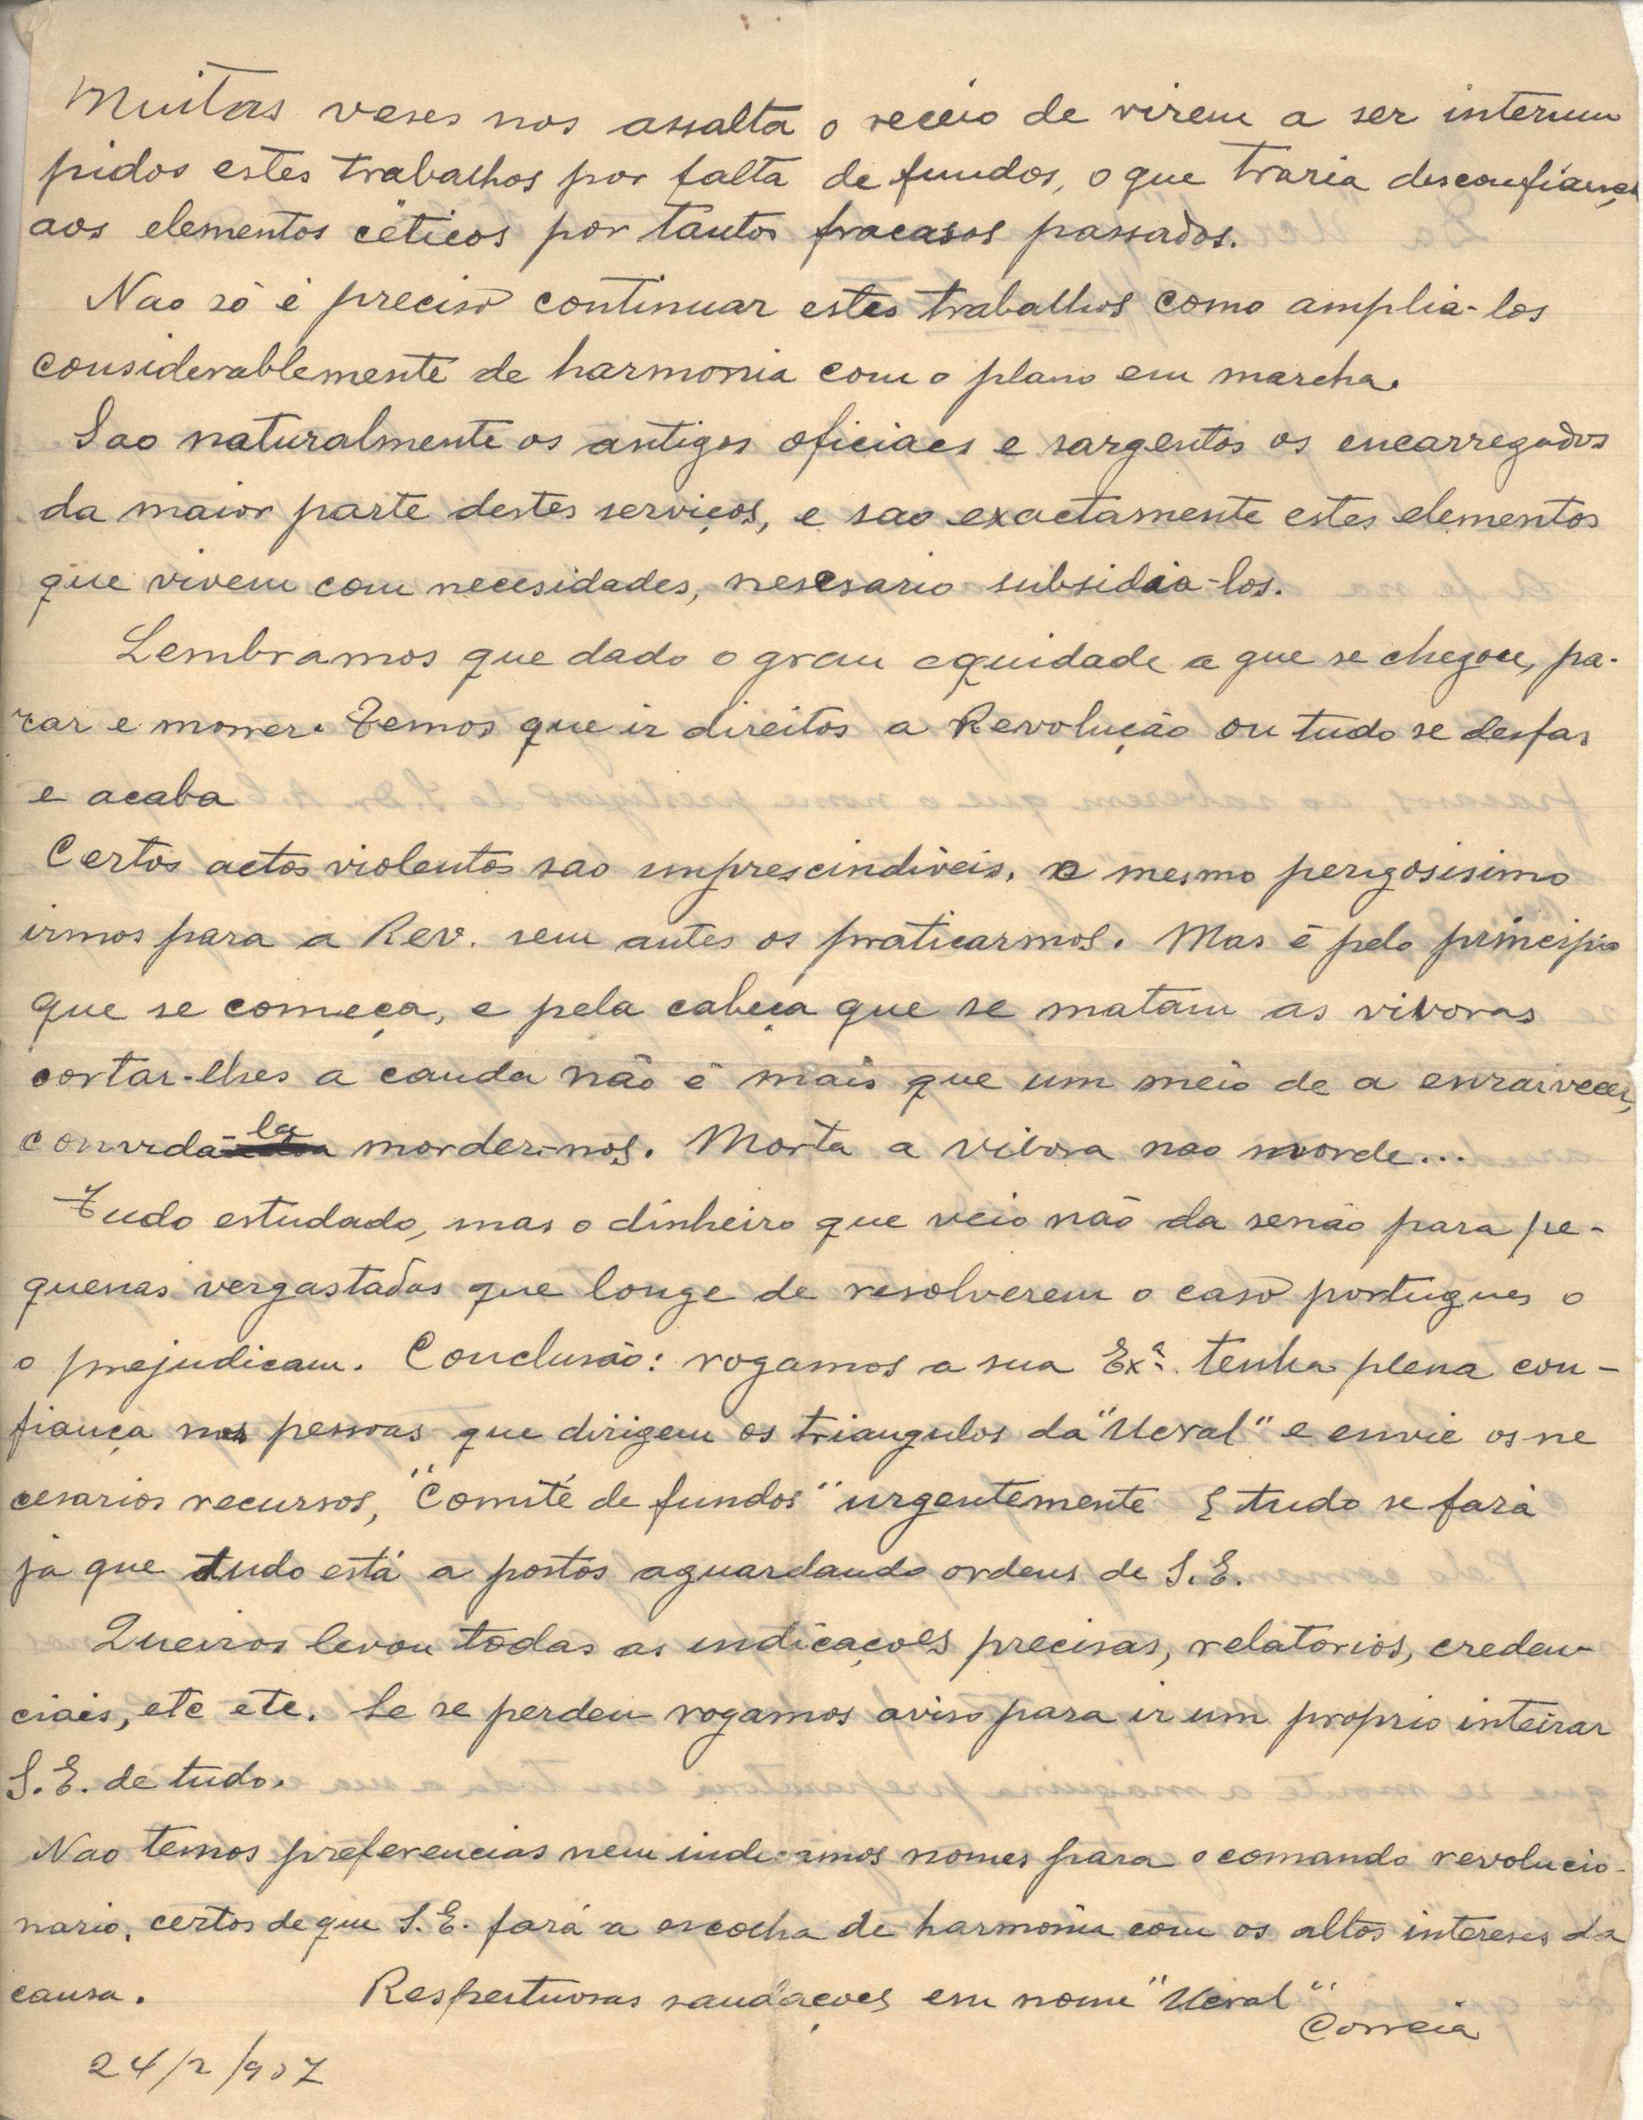 Muitas veses nos assalta o receio de virem a ser interrum
pidos estes trabalhos por falta de fundos, o que traria desconfiança
aos elementos céticos por tantos fracasos passados.
Nao só é preciso continuar estes trabalhos como amplia-los
considerablemente de harmonia com o plano em marcha.
Sao naturalmente os antigos oficiaes e sargentos os encarregados
da maior parte destes serviços, e sao exactamente estes elementos
que vivem com necesidades, nescesario subsidia-los.
Lembramos que dado o grau aquidade a que se chegou, pa-
rar e morrer. Temos que ir direitos a Revolução ou tudo se desfas
e acaba
Certos actos violentos sao imprescindiveis, e mesmo perigosisimo
irmos para a Rev. sem antes os praticarmos. Mas é pelo principio
que se começa, e pela cabeça que se matam as viboras
cortar-lhes a cauda não é mais que um meio de a enraivecer,
convidá-la morder-nos. Morta a vibora nao morde...
Tudo estudado, mas o dinheiro que veio não da senão para pe-
quenas vergastadas que longe de resolverem o caso portugues o
o prejudicam. Conclusão: rogamos a sua Exª. tenha plena con-
fiança nas pessoas que dirigem os triangulos da "Ucral" e envie os ne
cesarios recursos, "Comité de fundos" urgentemente E tudo se fará
já que tudo está a postos aguardando ordens de S.E.
Queiros levou todas as indicaçoes precisas, relatorios, creden
ciais, etc etc. Se se perdeu rogamos aviso para ir um proprio inteirar
S.E. de tudo.
Nao temos preferencias nem indicamos nomes para o comando revolucio-
nario, certos de que S.E. fará a escolha de harmonia com os altos intereses da
causa. Respeituosas saudaçoes em nome "Ucral"
Correia
24/2/937